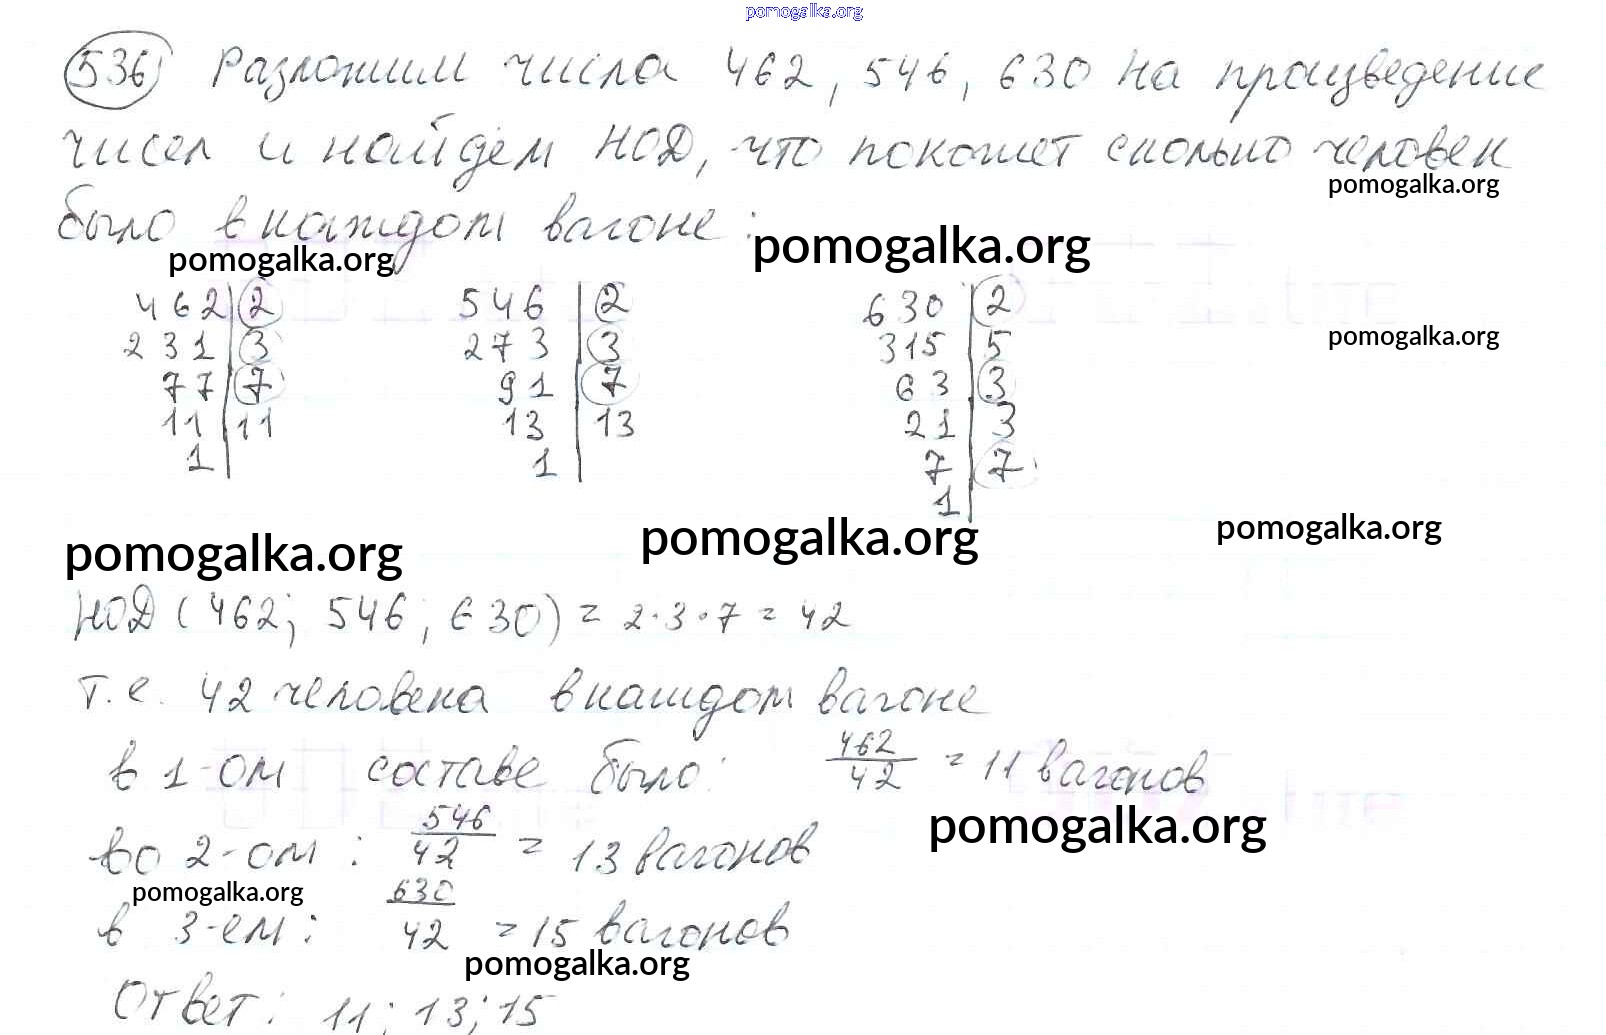 pomogalka.org
536) Разложим числа 462, 546, 630 на произведение
чисел и найдём НОД, что покажет сколько человек
pomogalka.org
было в каждом вагоне:
pomogalka.org
pomogalka.org
462 | 2 546 | 2 630 | 2
231 | 3 273 | 3 315 | 5
pomogalka.org
77 | 7 91 | 7 63 | 3
11 | 11 13 | 13 21 | 3
1 | 1 | 7 | 7
1 |
pomogalka.org
pomogalka.org
pomogalka.org
НОД (462; 546; 630) = 2·3·7 = 42
т.е. 42 человека в каждом вагоне
в 1-ом составе было: 462/42 = 11 вагонов
pomogalka.org
во 2-ом: 546/42 = 13 вагонов
pomogalka.org
в 3-ем: 630/42 = 15 вагонов
pomogalka.org
Ответ: 11; 13; 15